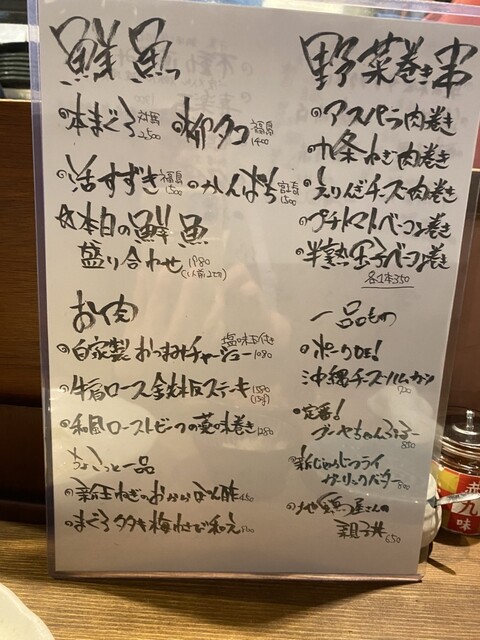 鮮魚
本まぐろ 対馬 2,500
柳タコ 福島 1400
活すずき 福島 1500
かんぱち 宮崎 1500
本日の鮮魚
盛り合わせ 1980
お肉
自家製おつまみチャーシュー 塩味玉付き 1080
牛肩ロース鉄板ステキ 1580
和風ローストビーフの薬味巻き 1280
ちょこっと一品
新玉ねぎのおかかぽん酢 450
まぐろタタキ梅わさび和え
野菜巻き串
アスパラ肉巻き
九条ねぎ肉巻き
えりんぎチーズ肉巻き
プチトマトベーコン巻き
半熟玉子ベーコン巻き
各1本350
一品もの
ポークDE!
沖縄チーズハムカツ 700
定番!
ゴーヤちゃんぷるー 850
新じゃがフライ
ガーリックバター 800
地鶏屋さんの
親子丼 650
赤
九
味